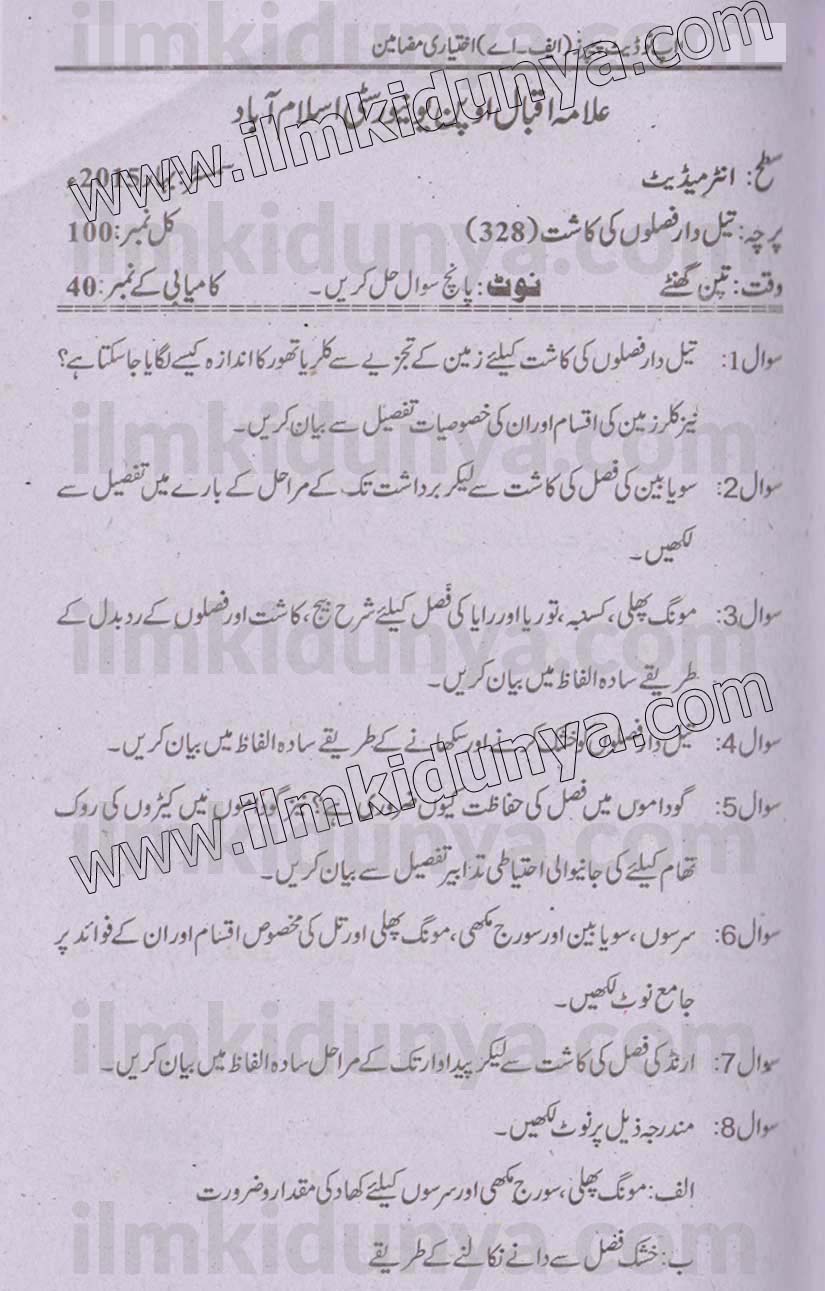 (ایف۔اے) اختیاری مضامین
علامہ اقبال اوپن یونیورسٹی اسلام آباد
سطح: انٹرمیڈیٹ 2015ء
پرچہ: تیل دار فصلوں کی کاشت (328) کل نمبر: 100
وقت: تین گھنٹے نوٹ: پانچ سوال حل کریں۔ کامیابی کے نمبر: 40
سوال 1: تیل دار فصلوں کی کاشت کیلئے زمین کے تجزیے سے کلر یا تھور کا اندازہ کیسے لگایا جا سکتا ہے؟
نیز کلر زمین کی اقسام اور ان کی خصوصیات تفصیل سے بیان کریں۔
سوال 2: سویا بین کی فصل کی کاشت سے لیکر برداشت تک کے مراحل کے بارے میں تفصیل سے
لکھیں۔
سوال 3: مونگ پھلی، کسنبہ، توریا اور رایا کی فصل کیلئے شرح بیج، کاشت اور فصلوں کے ردبدل کے
طریقے سادہ الفاظ میں بیان کریں۔
سوال 4: تیل دار فصلوں کو خشک کرنے اور سکھانے کے طریقے سادہ الفاظ میں بیان کریں۔
سوال 5: گوداموں میں فصل کی حفاظت کیوں ضروری ہے؟ نیز گوداموں میں کیڑوں کی روک
تھام کیلئے کی جانیوالی احتیاطی تدابیر تفصیل سے بیان کریں۔
سوال 6: سرسوں، سویا بین اور سورج مکھی، مونگ پھلی اور تل کی مخصوص اقسام اور ان کے فوائد پر
جامع نوٹ لکھیں۔
سوال 7: ارنڈ کی فصل کی کاشت سے لیکر پیداوار تک کے مراحل سادہ الفاظ میں بیان کریں۔
سوال 8: مندرجہ ذیل پر نوٹ لکھیں۔
الف: مونگ پھلی، سورج مکھی اور سرسوں کیلئے کھاد کی مقدار و ضرورت
ب: خشک فصل سے دانے نکالنے کے طریقے
www.ilmkidunya.com
www.ilmkidunya.com
ilmkidunya.com
ilmkidunya.com
ilmkidunya.com
ilmkidunya.com
ilmkidunya.com
ilmkidunya.com
ilmkidunya.com
ilmkidunya.com